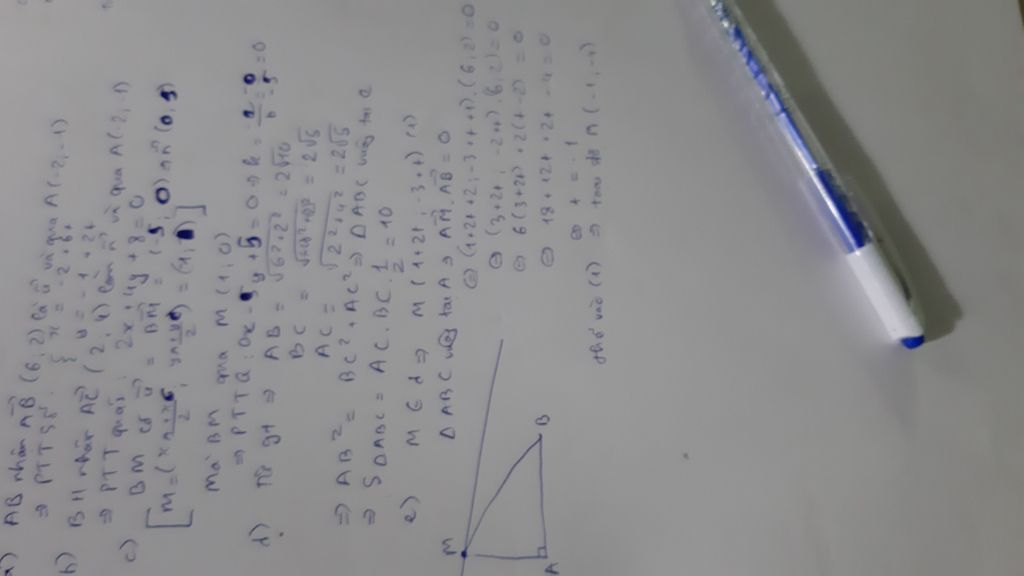 a) AB nhận AB (6; 2) là u và qua A(-2; -1)
⇒ PTTS: { x = -2 + 6t
y = -1 + 2t
b) BH nhận AC (2; 4) làm n và qua A(-2; -1)
⇒ PTT quát: 2x + 4y + 8 = 0
c) BM có u = BM = (-5; 0) n (0; 5)
[M = (xA+xC/2 ; yA+yC/2) = (-1; 1)]
Mà BM qua M (1; 0)
⇒ PTTQ: 0x - 5y + 5 = 0 ⇒ k = -a/b = -0/5 = 0
d) Từ gt ⇒ AB = √6²+2² = 2√10
BC = = 2√5
AC = √2²+4² = 2√5
⇒ AB² = BC² + AC² ⇒ ΔABC vuông tại C
⇒ SΔABC = AC.BC.1/2 = 10
e) M ∈ d ⇒ M (1+2t; -3+t) (1)
ΔABC vuông tại A ⇒ AM.AB = 0
⇔ (1+2t+2; -3+t+1).(6; 2) = 0
⇔ (3+2t; -2+t).(6; 2) = 0
⇔ 6(3+2t) + 2(t-2) = 0
⇔ 18 + 12t + 2t - 4 = 0
⇔ t = -1
thế vào (1) ⇒ toạ độ M (-1; -4)
M
A
B